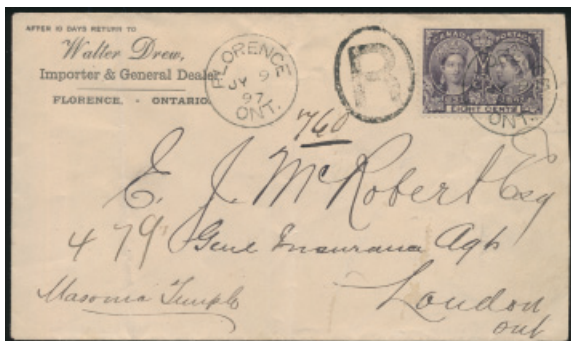 AFTER 10 DAYS RETURN TO
Walter Drew,
Importer & General Dealer
FLORENCE, - ONTARIO.
FLORENCE
JY 9
97
ONT.
R
CANADA POSTAGE
EIGHT CENTS
ONT.
760
E. J. McRobert Esq
479 Genl Insurance Agt
Masonic Temple
London
Ont